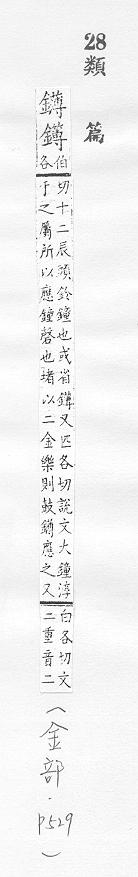 28
類篇
鑮鎛
伯
各
切十二辰頭鈴鐘也或省鎛又匹各切說文大鐘淳
于之屬所以應鐘磬也堵以二金樂則鼓鎛應之又
白各切文
二重音二
（金部．P529）